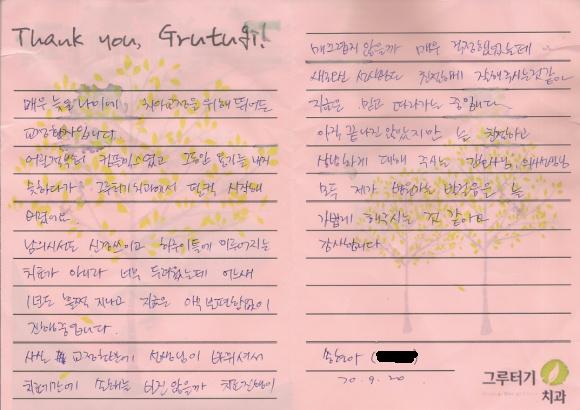 Thank you, Grutugi!
매우 늦은 나이에 치아교정을 위해 뛰어든
교정환자입니다
어릴적부터 컴플렉스였고 그동안 용기를 내지
못하다가 그루터기치과에서 덜컥 시작해
버렸어요.
남의시선도 신경쓰이고 하루이틀에 이루어지는
치료가 아니라 너무 두려웠는데 어느새
1년도 훌쩍 지나고 지금은 아무 불편함없이
진행중입니다.
사실 교정한번에 선생님이 바뀌셔서
치료기간에 손해는 되진 않을까 치료진행이
매끄럽지 않을까 매우 걱정했었는데
새로오신 선생님도 친절하게 잘해주시는것같아
지금은 믿고 따라가는 중입니다
아직 끝나진 않았지만 늘 친절하고
상냥하게 대해 주시는 간호사님, 의사선생님
모두 제가 병원가는 발걸음을 늘
가볍게 해주시는 것 같아요
감사합니다.
20.9.20
그루터기
치과